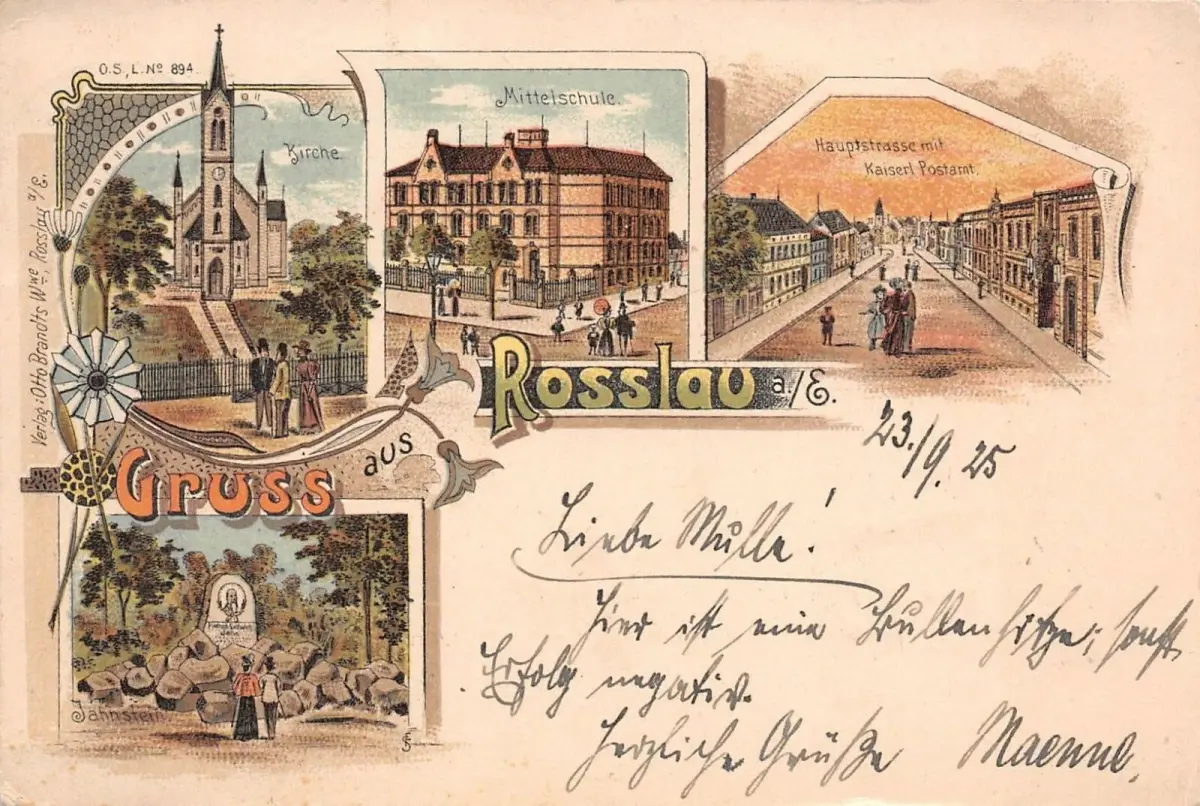 O.S., L. Nº 894.
Kirche.
Mittelschule.
Hauptstrasse mit
Kaiserl. Postamt.
Verlag: Otto Brandts Wwe, Rosslau a/E.
Gruss aus
Rosslau a./E.
Jahnstein.
23./9. 25
Liebe Mulle!
Hier ist eine Bullenhitze; sonst
Erfolg negativ.
Herzliche Grüße Maenne.